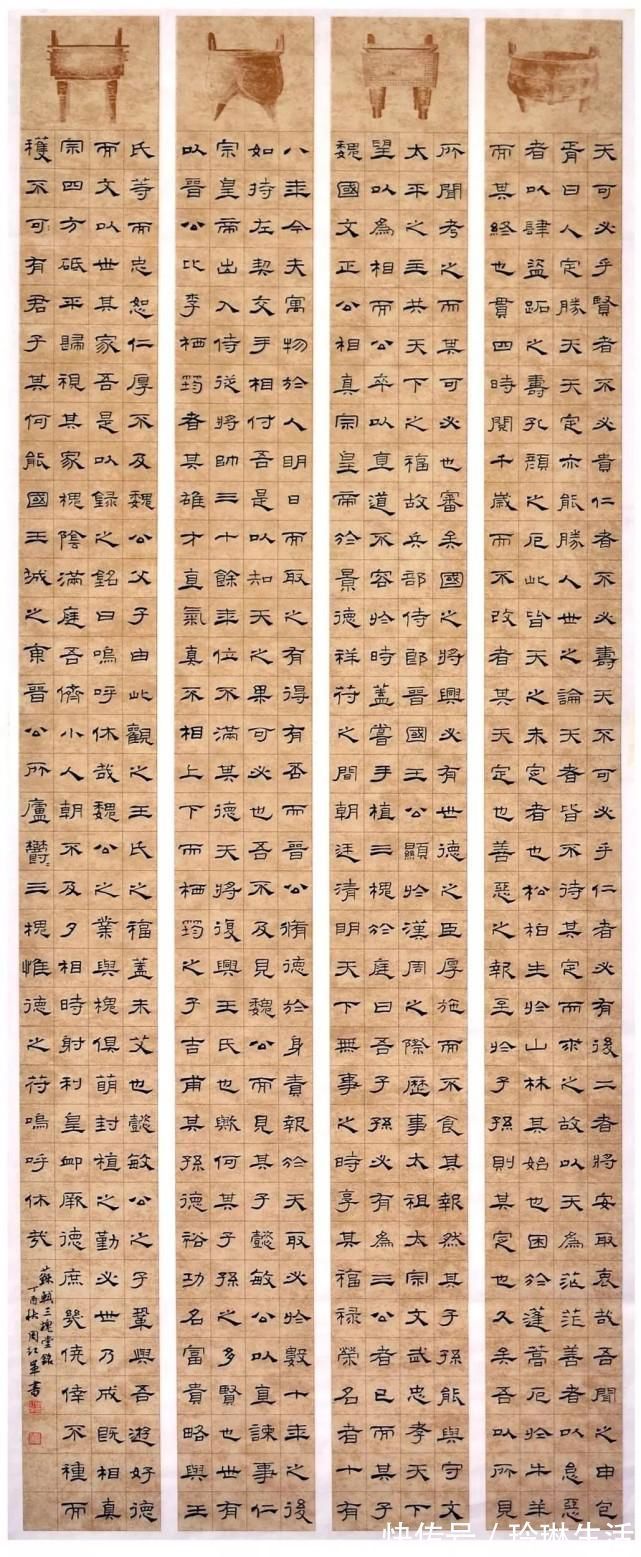 天可必乎賢者不必貴仁者不必壽天不可必乎仁者必有後二者將安取衷哉吾聞之申包
胥曰人定勝天天定亦能勝人世之論天者皆不待其定而求之故以天為茫茫善者以怠惡
者以肆盜跖之壽孔顏之厄此皆天之未定者也松柏生於山林其始也困於蓬蒿厄於牛羊
而其終也貫四時閱千歲而不改者其天定也善惡之報至於子孫則其定也久矣吾以所見
所聞考之而其可必也審矣國之將興必有世德之臣厚施而不食其報然其子孫能與守文
太平之主共天下之福故兵部侍郎晉國王公顯於漢周之際歷事太祖太宗文武忠孝天下
望以為相而公卒以直道不容於時蓋嘗手植三槐於庭曰吾子孫必有為三公者已而其子
魏國文正公相真宗皇帝於景德祥符之間朝廷清明天下無事之時享其福祿榮名者十有
八年今夫寓物於人明日而取之有得有否而晉公脩德於身責報於天取必於數十年之後
如持左契交手相付吾是以知天之果可必也吾不及見魏公而見其子懿敏公以直諫事仁
宗皇帝出入侍從將帥三十餘年位不滿其德天將復興王氏也歟何其子孫之多賢也世有
以晉公比李栖筠者其雄才直氣真不相上下而栖筠之子吉甫其孫德裕功名富貴略與王
氏等而忠恕仁厚不及魏公父子由此觀之王氏之福蓋未艾也懿敏公之子鞏與吾遊好德
而文以世其家吾是以錄之銘曰嗚呼休哉魏公之業與槐俱萌封植之勤必世乃成既相真
宗四方砥平歸視其家槐陰滿庭吾儕小人朝不及夕相時射利皇卹厥德庶幾僥倖不種而
穫不可有君子其何能國王城之東晉公所廬鬱〻三槐惟德之符嗚呼休哉
蘇軾三槐堂銘
丁酉秋周江書
快传号／玲琳生活